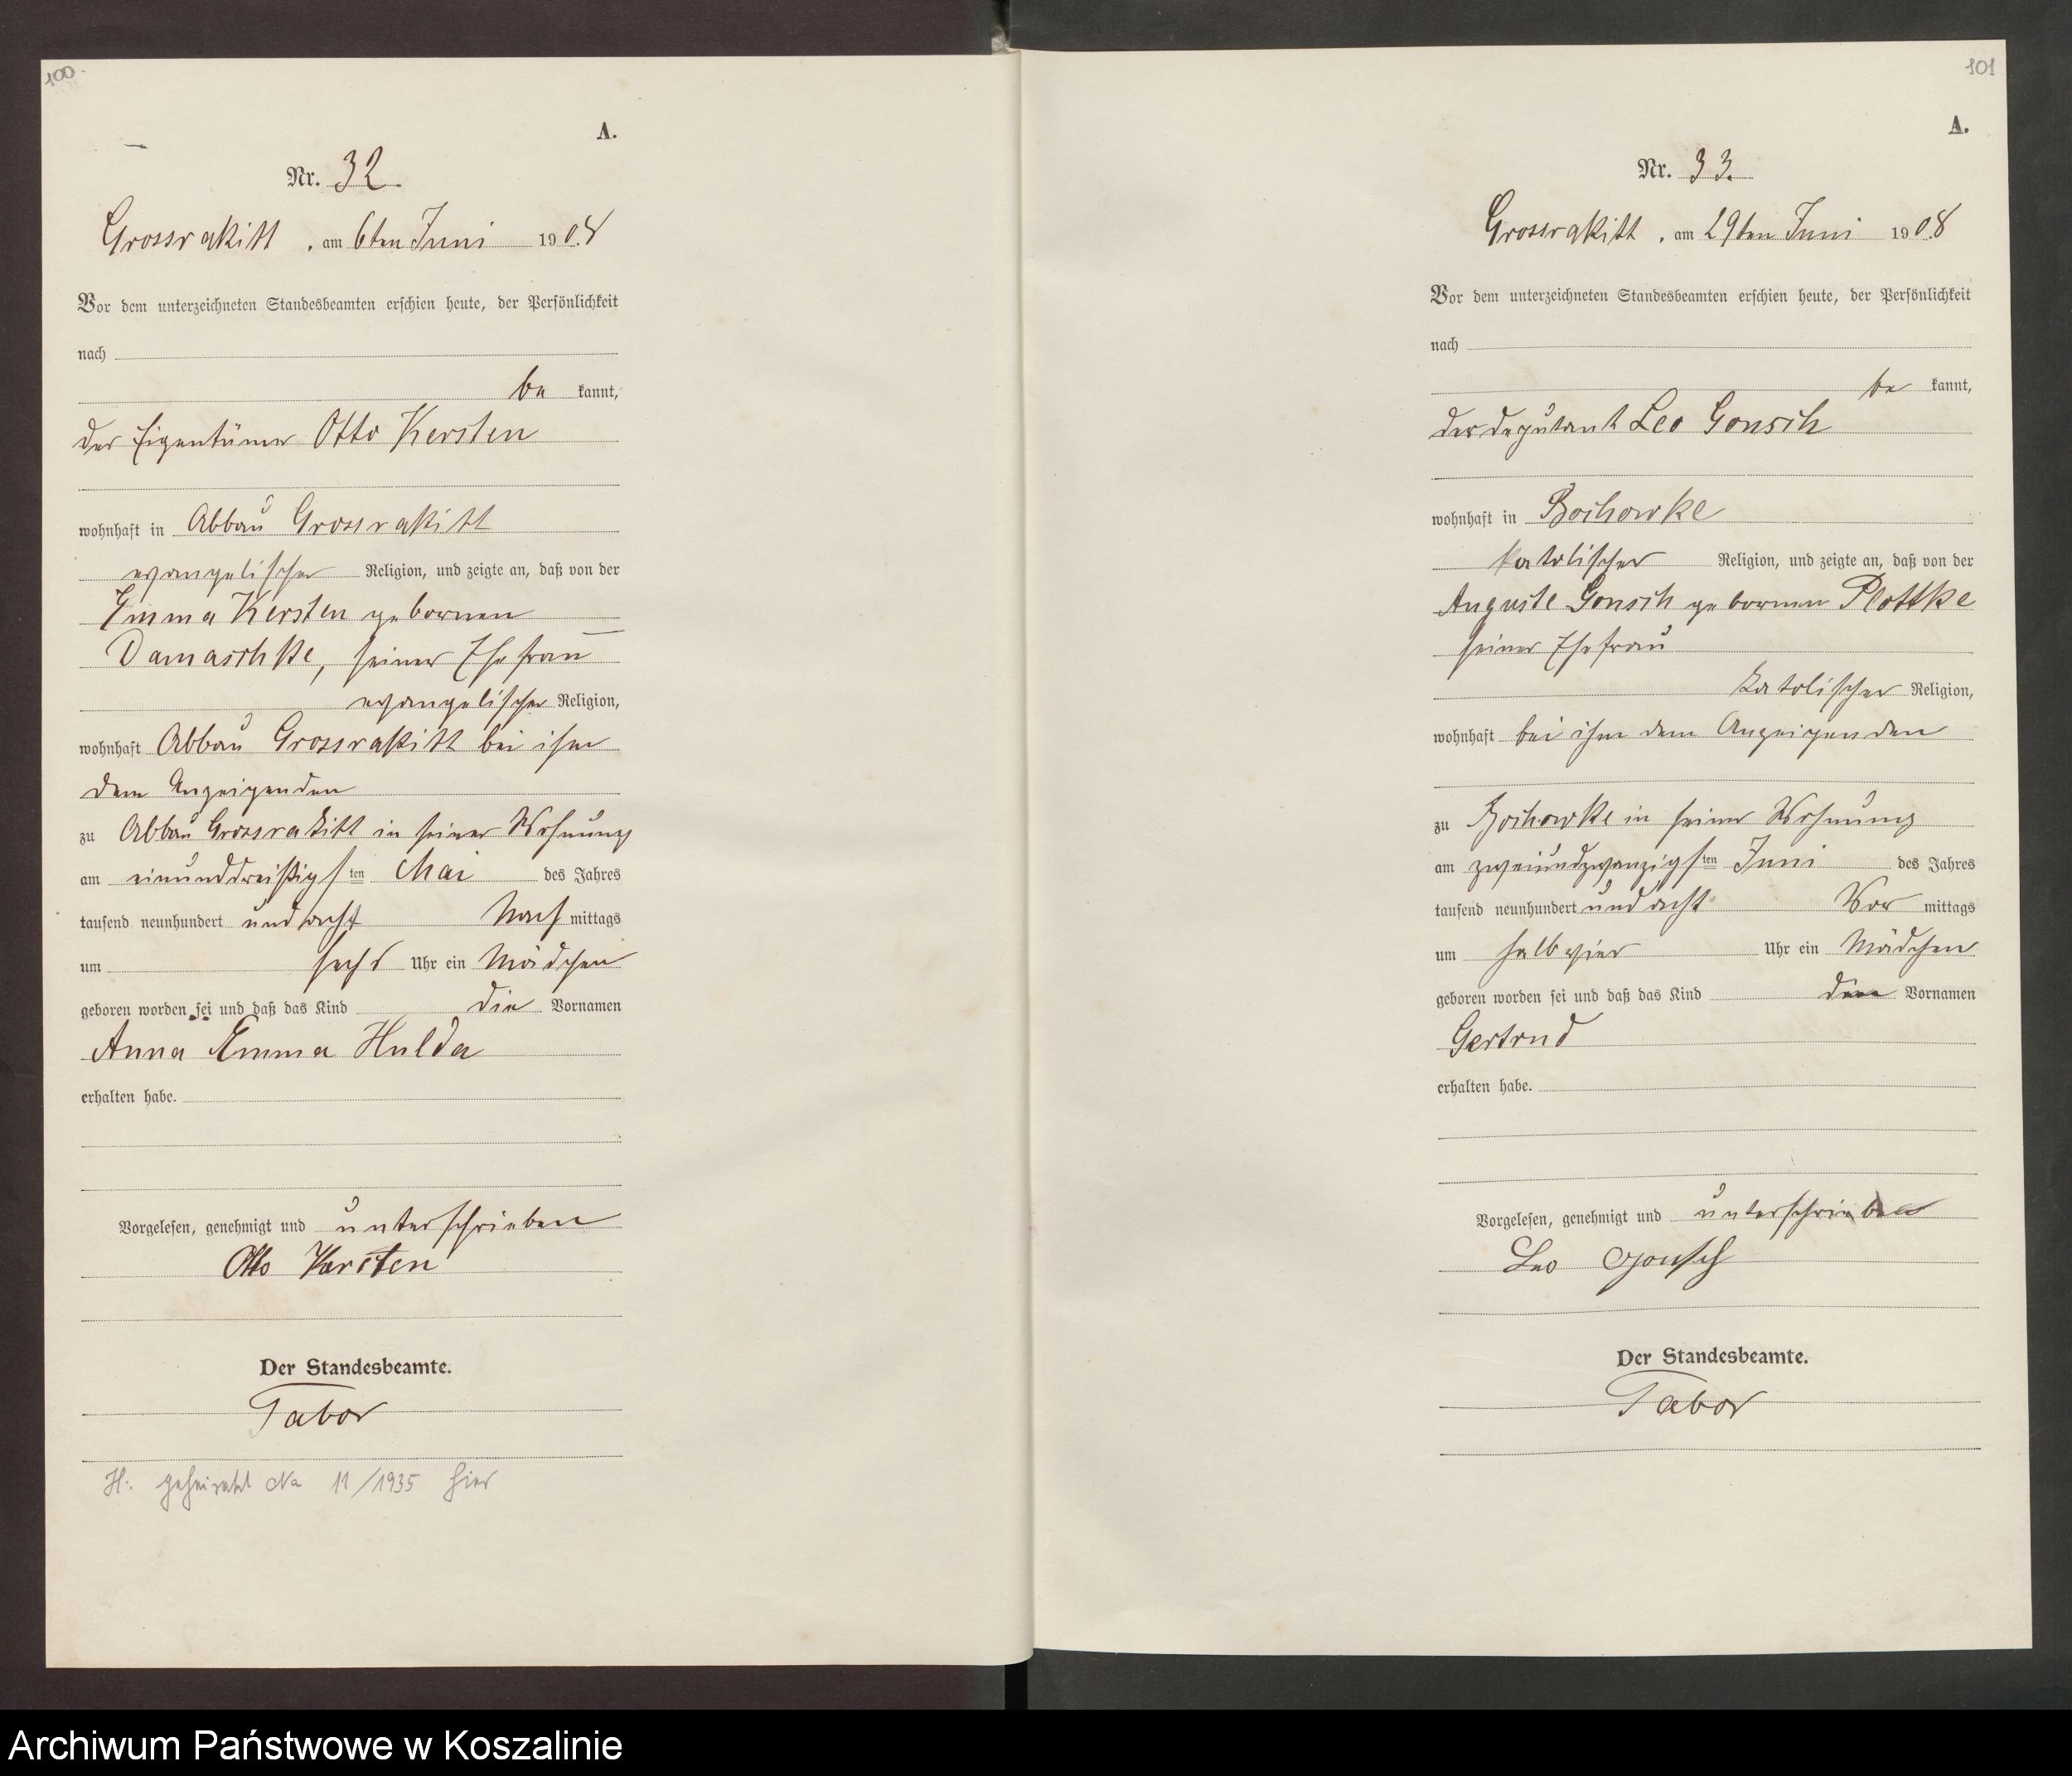 100.
A.
Nr. 32.
Grossrakitt, am 6ten Juni 1908
Vor dem unterzeichneten Standesbeamten erschien heute, der Persönlichkeit
nach
be kannt,
der Eigentümer Otto Kersten
wohnhaft in Abbau Grossrakitt
evangelischer Religion, und zeigte an, daß von der
Emma Kersten gebornen
Damaschke, seiner Ehefrau
evangelischer Religion,
wohnhaft Abbau Grossrakitt bei ihm
dem Anzeigenden
zu Abbau Grossrakitt in seiner Wohnung
am einunddreißigsten Mai des Jahres
tausend neunhundert und acht Nachmittags
um sechs Uhr ein Mädchen
geboren worden sei und daß das Kind die Vornamen
Anna Emma Hulda
erhalten habe.
Vorgelesen, genehmigt und unterschrieben
Otto Kersten
Der Standesbeamte.
Tabor
H: geheiratet No 11/1935 hier
101
A.
Nr. 33.
Grossrakitt, am 29ten Juni 1908
Vor dem unterzeichneten Standesbeamten erschien heute, der Persönlichkeit
nach
be kannt,
der Deputant Leo Gonsch
wohnhaft in Bochowke
katolischer Religion, und zeigte an, daß von der
Auguste Gonsch gebornen Plottke
seiner Ehefrau
katolischer Religion,
wohnhaft bei ihm dem Anzeigenden
zu Bochowke in seiner Wohnung
am zweiundzwanzigsten Juni des Jahres
tausend neunhundert und acht Vormittags
um halb vier Uhr ein Mädchen
geboren worden sei und daß das Kind den Vornamen
Gertrud
erhalten habe.
Vorgelesen, genehmigt und unterschrieben
Leo Gonsch
Der Standesbeamte.
Tabor
Archiwum Państwowe w Koszalinie